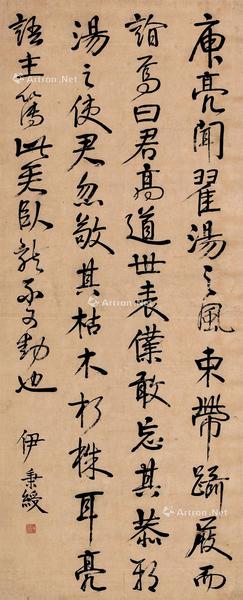 庾亮聞翟湯之風束帶躡屐而
詣焉曰君高道世表僕敢忘其恭邪
湯之使君忽敬其枯木朽株耳亮
語主簿此君臥龍不可動也
伊秉綬
Artron.Net
Artron.Net
Artron.Net